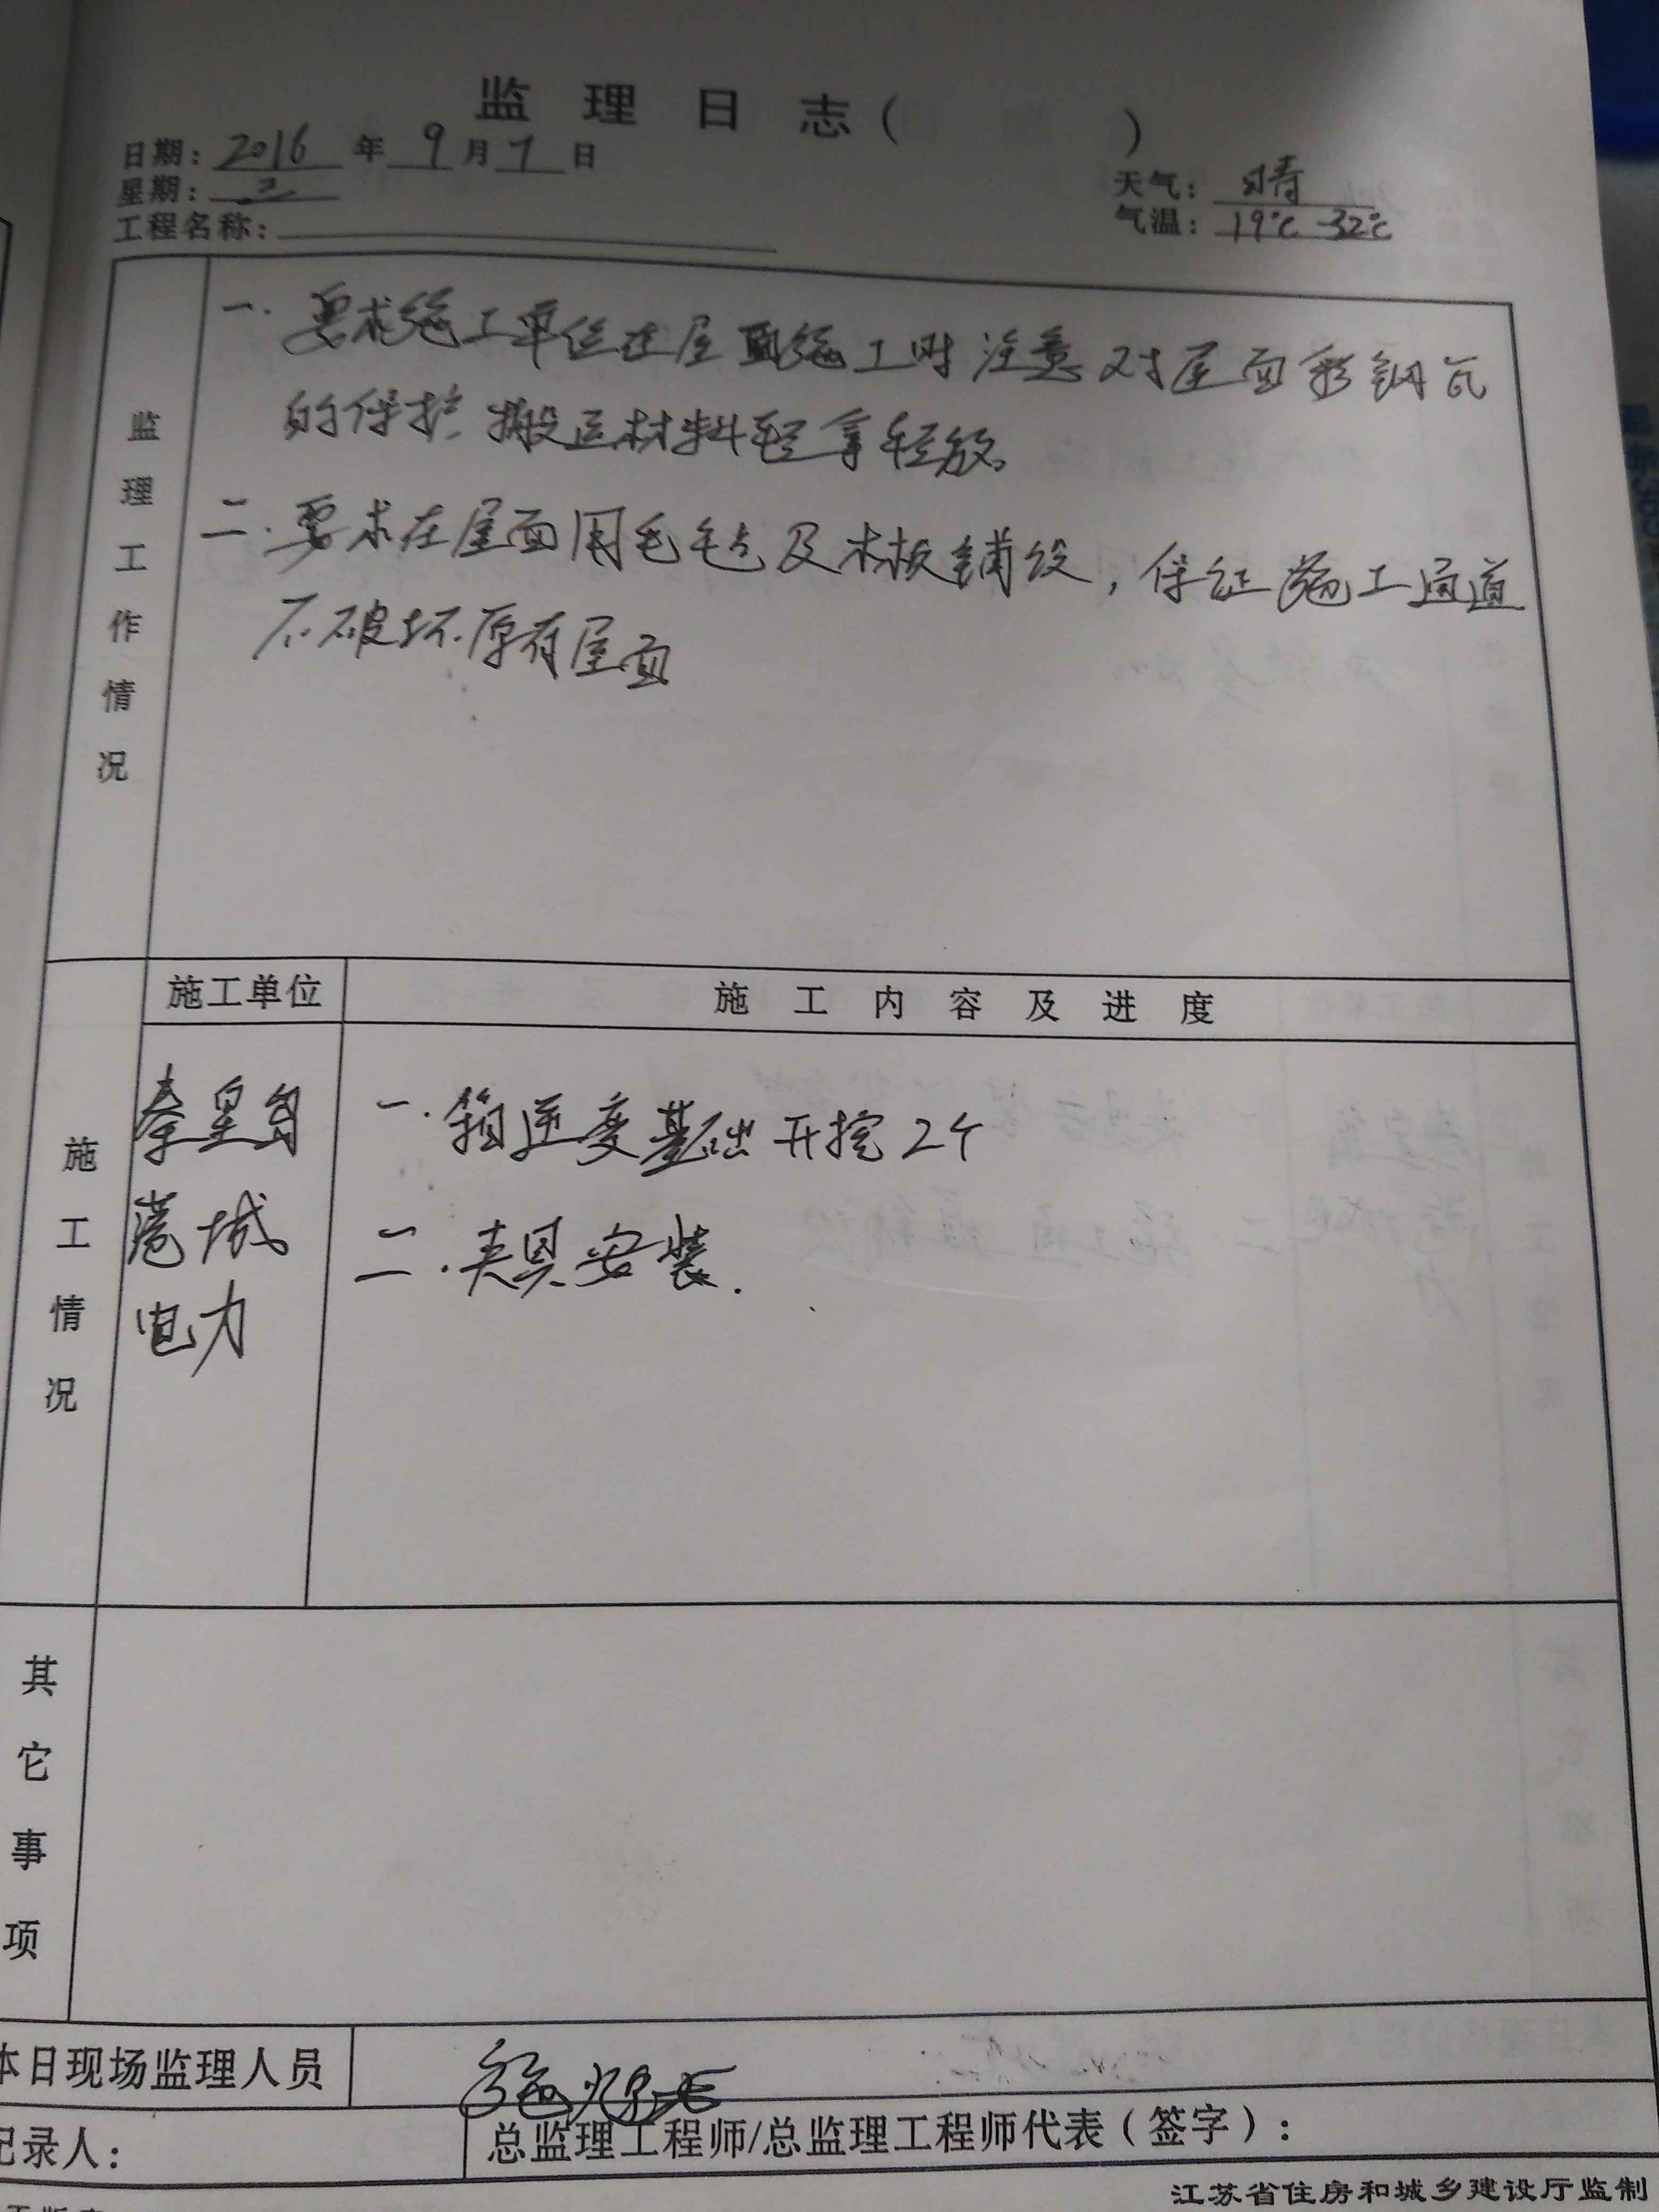 监理日志( )
日期：2016年9月7日
星期：三
天气：晴
工程名称：
气温：19℃-32℃
监理工作情况
一.要求施工单位在屋面施工时注意对屋面彩钢瓦
的保护 搬运材料轻拿轻放。
二.要求在屋面用毛毛毡及木板铺设，保证施工通道
不破坏原有屋面
施工单位
施工内容及进度
施工情况
秦皇岛
港城
电力
一.箱逆变基础开挖2个
二.夹具安装.
其它事项
本日现场监理人员
记录人：
总监理工程师/总监理工程师代表（签字）：
江苏省住房和城乡建设厅监制